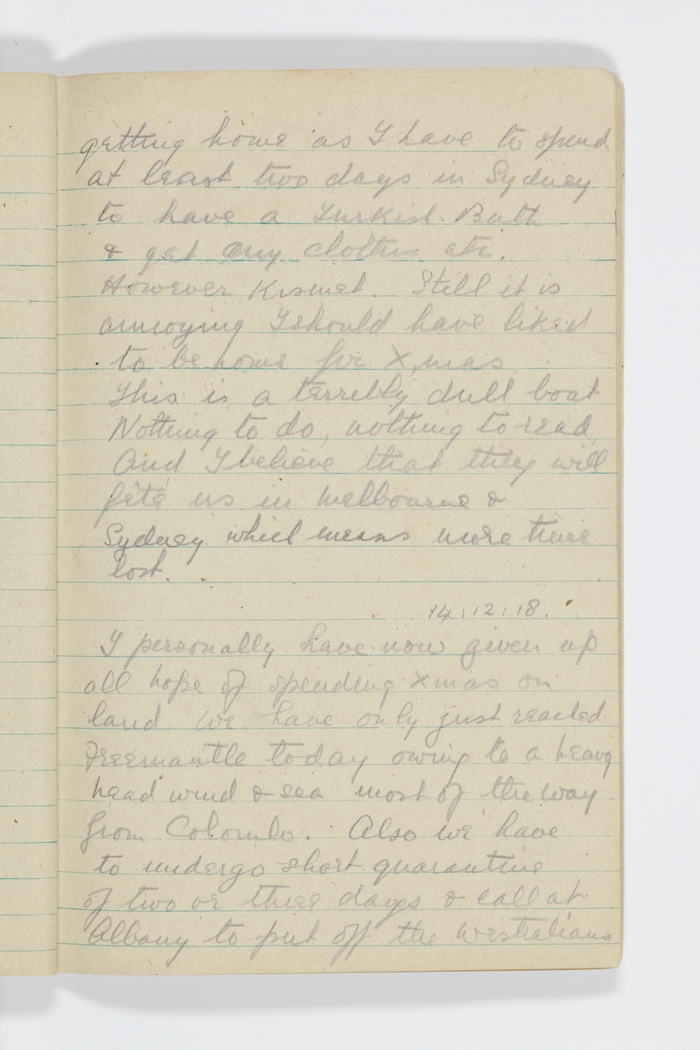 getting home as I have to spend
at least two days in Sydney
to have a Turkish Bath
& get my clothes etc.
However Kismet. Still it is
annoying I should have liked
to be home for Xmas
This is a terribly dull boat
Nothing to do, nothing to read,
And I believe that they will
fête us in Melbourne &
Sydney which means more time
lost.
14:12:18.
I personally have now given up
all hope of spending Xmas on
land we have only just reached
Freemantle today owing to a heavy
head wind & sea most of the way
from Colombo. Also we have
to undergo short quarantine
of two or three days & call at
Albany to put off the Westralians